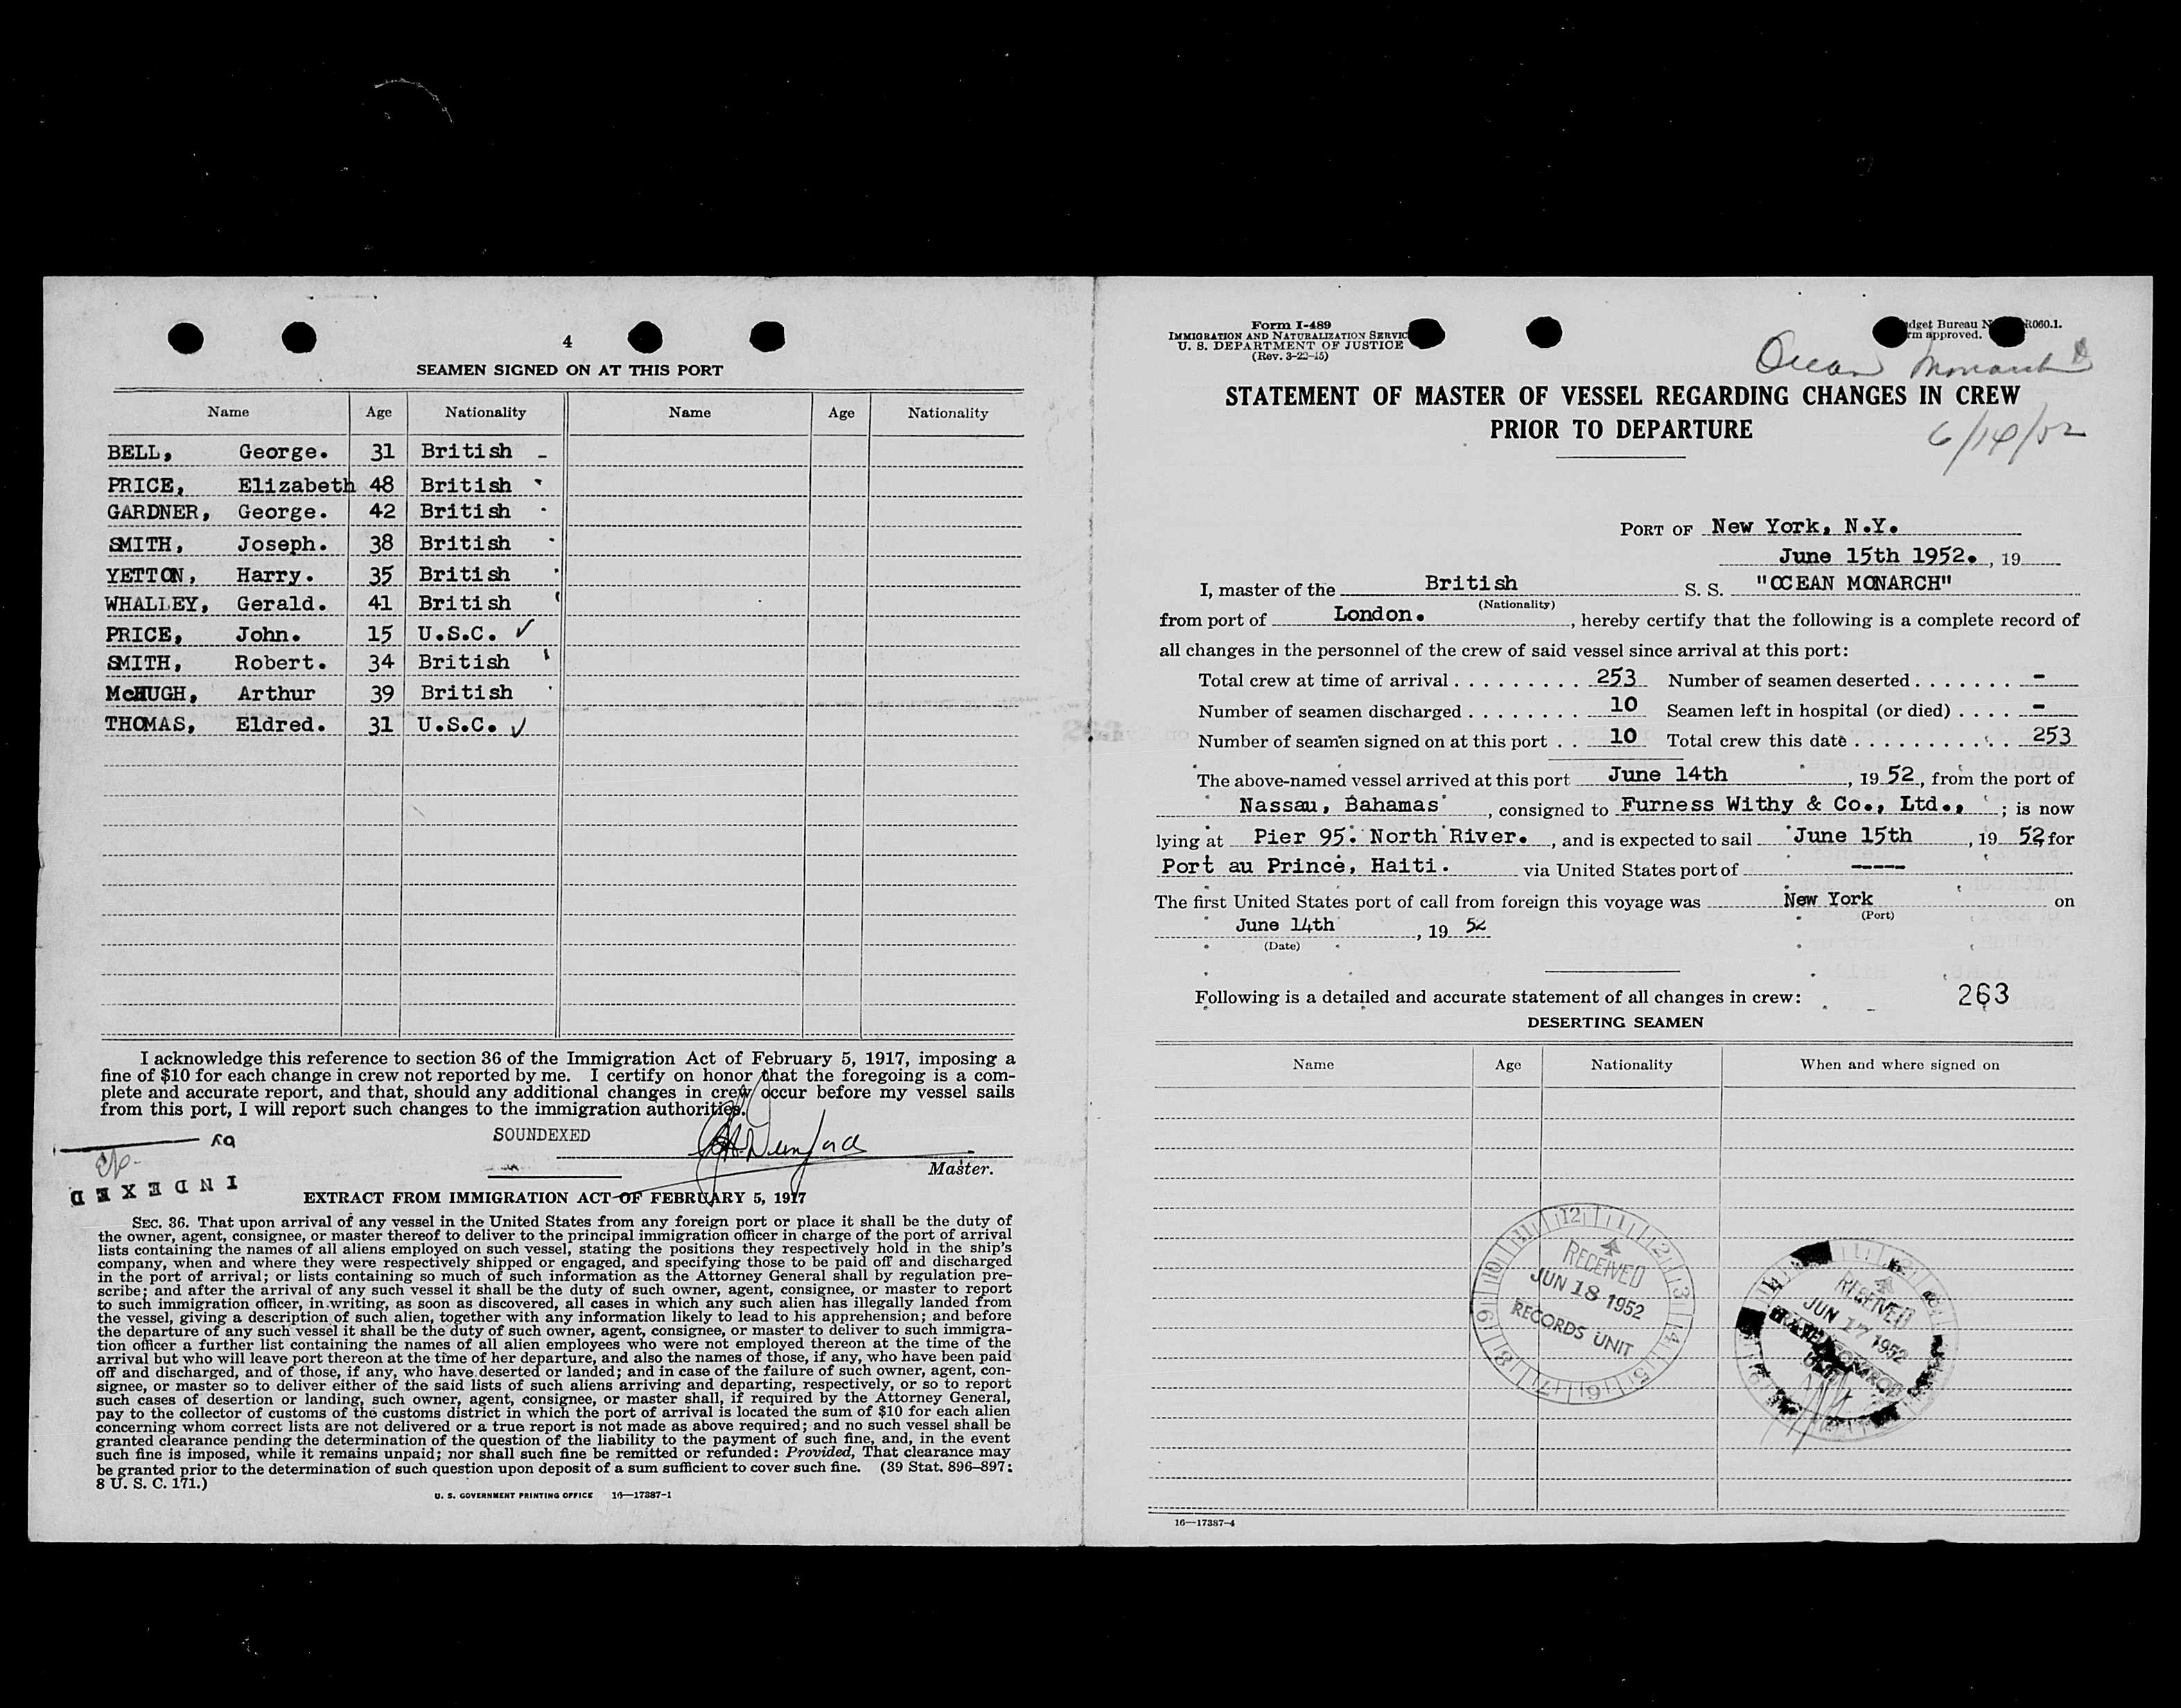 4
SEAMEN SIGNED ON AT THIS PORT
Name Age Nationality Name Age Nationality
BELL, George. 31 British
PRICE, Elizabeth 48 British
GARDNER, George. 42 British
SMITH, Joseph. 38 British
YETTON, Harry. 35 British
WHALLEY, Gerald. 41 British
PRICE, John. 15 U.S.C. ✓
SMITH, Robert. 34 British
McHUGH, Arthur 39 British
THOMAS, Eldred. 31 U.S.C. ✓
I acknowledge this reference to section 36 of the Immigration Act of February 5, 1917, imposing a
fine of $10 for each change in crew not reported by me. I certify on honor that the foregoing is a com-
plete and accurate report, and that, should any additional changes in crew occur before my vessel sails
from this port, I will report such changes to the immigration authorities.
SOUNDEXED
Master.
INDEXED
by
EXTRACT FROM IMMIGRATION ACT OF FEBRUARY 5, 1917
SEC. 36. That upon arrival of any vessel in the United States from any foreign port or place it shall be the duty of
the owner, agent, consignee, or master thereof to deliver to the principal immigration officer in charge of the port of arrival
lists containing the names of all aliens employed on such vessel, stating the positions they respectively hold in the ship's
company, when and where they were respectively shipped or engaged, and specifying those to be paid off and discharged
in the port of arrival; or lists containing so much of such information as the Attorney General shall by regulation pre-
scribe; and after the arrival of any such vessel it shall be the duty of such owner, agent, consignee, or master to report
to such immigration officer, in writing, as soon as discovered, all cases in which any such alien has illegally landed from
the vessel, giving a description of such alien, together with any information likely to lead to his apprehension; and before
the departure of any such vessel it shall be the duty of such owner, agent, consignee, or master to deliver to such immigra-
tion officer a further list containing the names of all alien employees who were not employed thereon at the time of the
arrival but who will leave port thereon at the time of her departure, and also the names of those, if any, who have been paid
off and discharged, and of those, if any, who have deserted or landed; and in case of the failure of such owner, agent, con-
signee, or master so to deliver either of the said lists of such aliens arriving and departing, respectively, or so to report
such cases of desertion or landing, such owner, agent, consignee, or master shall, if required by the Attorney General,
pay to the collector of customs of the customs district in which the port of arrival is located the sum of $10 for each alien
concerning whom correct lists are not delivered or a true report is not made as above required; and no such vessel shall be
granted clearance pending the determination of the question of the liability to the payment of such fine, and, in the event
such fine is imposed, while it remains unpaid; nor shall such fine be remitted or refunded: Provided, That clearance may
be granted prior to the determination of such question upon deposit of a sum sufficient to cover such fine. (39 Stat. 896–897;
8 U. S. C. 171.)
U. S. GOVERNMENT PRINTING OFFICE 16—17387-1
Form I-489
IMMIGRATION AND NATURALIZATION SERVIC
U. S. DEPARTMENT OF JUSTICE
(Rev. 3-22-45)
dget Bureau N R060.1.
rm approved.
Ocean Monarch
STATEMENT OF MASTER OF VESSEL REGARDING CHANGES IN CREW
PRIOR TO DEPARTURE
6/14/52
PORT OF New York, N.Y.
June 15th 1952. , 19
I, master of the British S. S. "OCEAN MONARCH"
(Nationality)
from port of London. , hereby certify that the following is a complete record of
all changes in the personnel of the crew of said vessel since arrival at this port:
Total crew at time of arrival . . . . . . . . . . 253 Number of seamen deserted . . . . . . . -
Number of seamen discharged . . . . . . . . 10 Seamen left in hospital (or died) . . . . -
Number of seamen signed on at this port . . 10 Total crew this date . . . . . . . . . . 253
The above-named vessel arrived at this port June 14th , 19 52, from the port of
Nassau, Bahamas , consigned to Furness Withy & Co., Ltd., ; is now
lying at Pier 95. North River. , and is expected to sail June 15th , 19 52 for
Port au Prince, Haiti. via United States port of -----
The first United States port of call from foreign this voyage was New York on
(Port)
June 14th , 19 52
(Date)
Following is a detailed and accurate statement of all changes in crew: 263
DESERTING SEAMEN
Name Age Nationality When and where signed on
12 1 2 3 4 5 6 7 8 9 10 11
RECEIVED
JUN 18 1952
RECORDS UNIT
RECEIVED
JUN 17 1952
16—17387-4